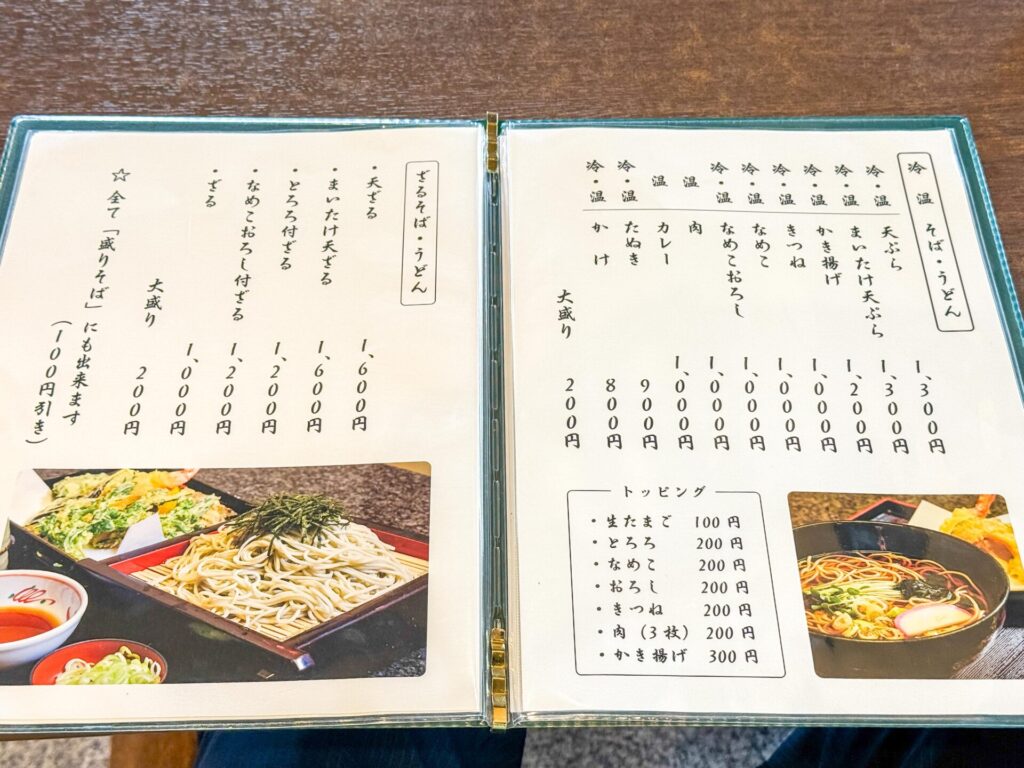 冷 温 そば・うどん
冷・温 天ぷら 1、300円
冷・温 まいたけ天ぷら 1、300円
冷・温 かき揚げ 1、200円
冷・温 きつね 1、000円
冷・温 なめこ 1、000円
冷・温 なめこおろし 1、000円
温 肉 1、000円
温 カレー 1、000円
冷・温 たぬき 900円
冷・温 かけ 800円
大盛り 200円
トッピング
・生たまご 100円
・とろろ 200円
・なめこ 200円
・おろし 200円
・きつね 200円
・肉（3枚） 200円
・かき揚げ 300円
ざるそば・うどん
・天ざる 1、600円
・まいたけ天ざる 1、600円
・とろろ付ざる 1、200円
・なめこおろし付ざる 1、200円
・ざる 1、000円
大盛り 200円
☆ 全て「盛りそば」にも出来ます
（100円引き）